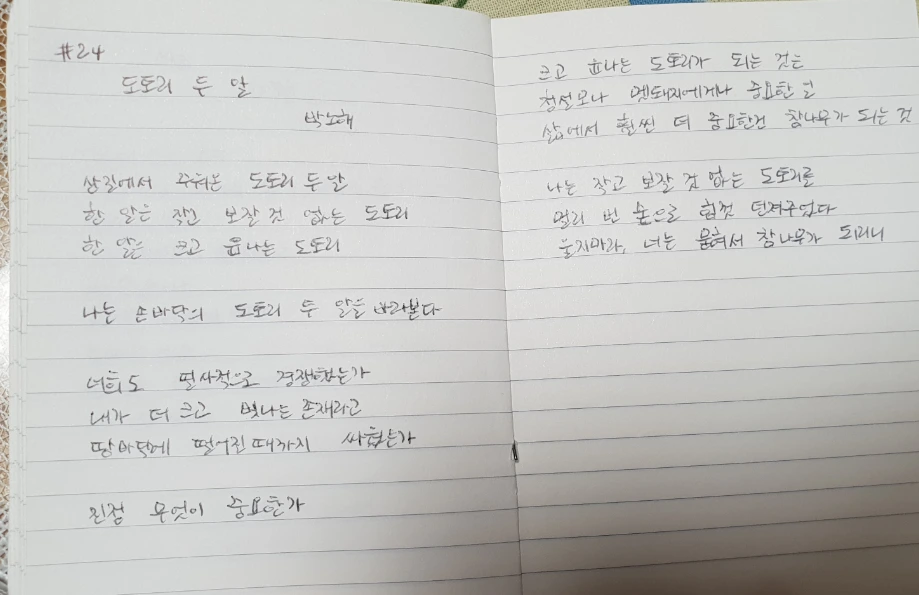 #24
도토리 두 알
박노해
산길에서 주워온 도토리 두 알
한 알은 작고 보잘 것 없는 도토리
한 알은 크고 윤나는 도토리
나는 손바닥의 도토리 두 알을 바라본다
너희도 필사적으로 경쟁했는가
내가 더 크고 빛나는 존재라고
땅바닥에 떨어진때까지 싸웠는가
진정 무엇이 중요한가
크고 윤나는 도토리가 되는 것은
청설모나 멧돼지에게나 중요한 일
삶에서 훨씬 더 중요한건 참나무가 되는 것
나는 작고 보잘 것 없는 도토리를
멀리 빈 숲으로 힘껏 던져주었다
울지마라, 너는 묻혀서 참나무가 되리니